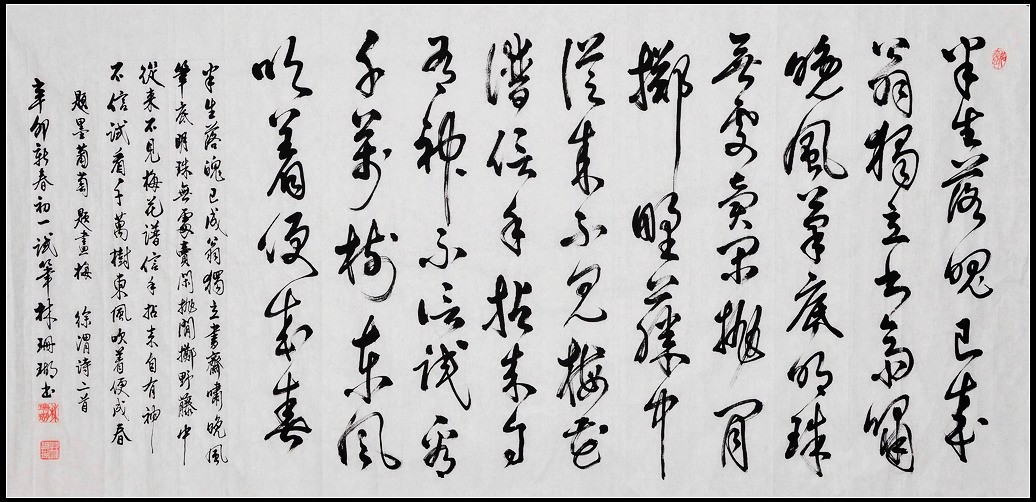 半生落魄已成
翁獨立书斋嘯
晚風筆底明珠
無處賣閑抛閒
擲野藤中
從来不見梅花
譜信手拈来自
有神不信試看
千萬樹東風
吹着便成春
半生落魄已成翁獨立書齋嘯晚風
筆底明珠無處賣閑抛閒擲野藤中
從来不見梅花譜信手拈来自有神
不信試看千萬樹東風吹着便成春
題墨葡萄 題畫梅 徐渭詩二首
辛卯新春初一試筆 林珊瑚书